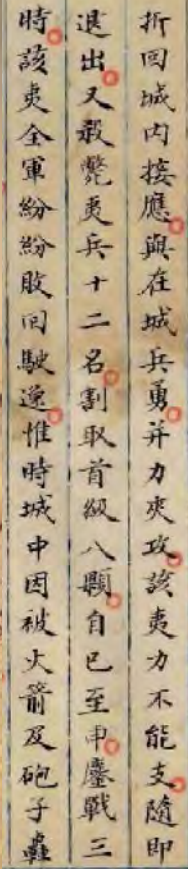 折回城内接應與在城兵勇并力夾攻該夷力不能支隨即
退出又殺斃夷兵十二名割取首級八顆自巳至申鏖戰三
時該夷全軍紛紛敗回駛遁惟時城中因被火箭及砲子轟